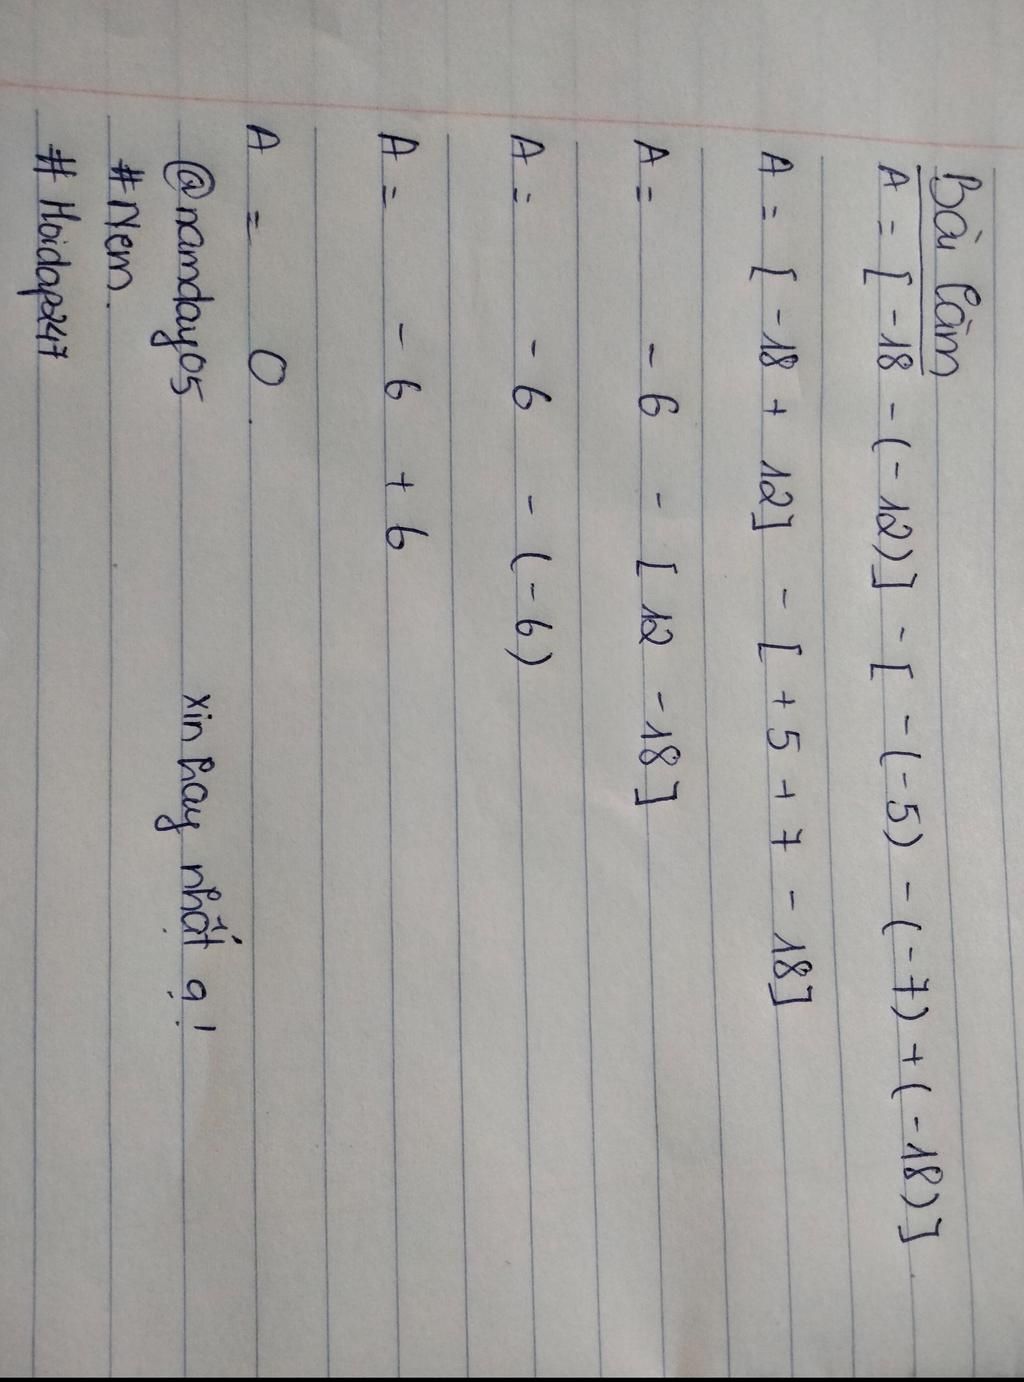 Bài làm
A = [ -18 - (-12)] - [ -(-5) - (-7) + (-18)]
A = [ -18 + 12] - [ +5 + 7 - 18]
A = - 6 - [ 12 - 18]
A = - 6 - (-6)
A = - 6 + 6
A = 0.
@namday05 xin hay nhất ạ!
#Nem.
#Hoidap247